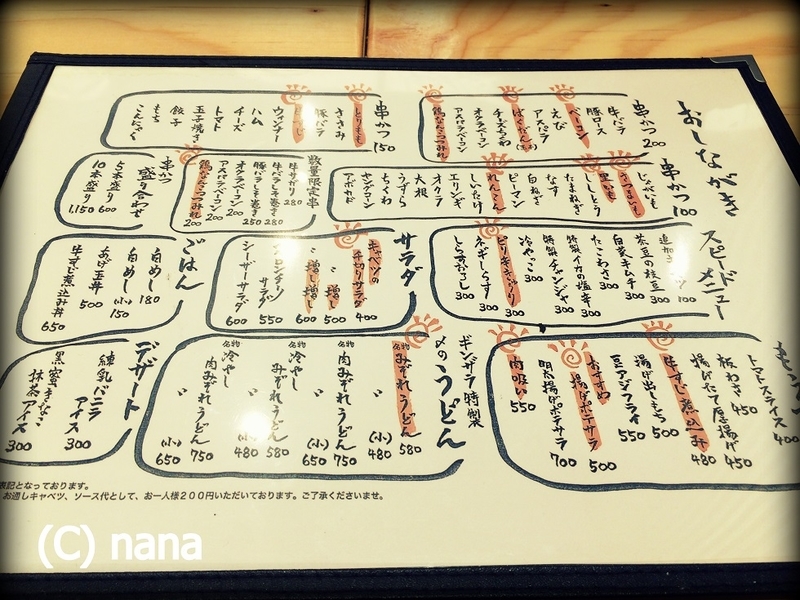 おしながき
串かつ 200
牛バラ
豚ロース
ベーコン
えび
アスパラ
チョうちくわ
オクラベーコン
アスパラベーコン
串かつ 150
とりもも
ささみ
豚バラ
ウィンナー
ハム
チーズ
トマト
玉子焼き
餃子
もち
こんにゃく
串かつ 100
じゃがいも
さつまいも
里いも
ししとう
玉ねぎ
なす
白ねぎ
ピーマン
れんこん
しいたけ
エリンギ
オクラ
大根
うずら
ちくわ
ヤングコーン
アボカド
数量限定串
牛サガリ 280
牛バラしそ巻き 280
豚バラしそ巻き 250
オクラベーコン 200
アスパラベーコン 200
200
串かつ
盛り合わせ
5本盛り 600
10本盛り 1,150
スピードメニュー
追加キャベツ 100
茶豆の枝豆 300
白菜キムチ 300
たこわさ 300
特製イカの塩辛 300
特製チャンジャ 300
冷やっこ 300
ピリ辛きゅうり 300
ネギしらす 300
しらすおろし 300
サラダ
キャベツの千切りサラダ 400
〃 増し 500
〃 増し増し 600
サラダ 550
シーザーサラダ 600
ごはん
白めし 180
白めし (小) 150
よあげ玉丼 500
牛すじ煮込み丼 650
トマトスライス 400
板わさ 450
揚げたて厚揚げ 450
牛すじ煮込み 480
揚げ出しもち 500
豆アジフライ 550
おすすめ 揚げポテサラ 500
明太揚げポテサラ 700
肉吸い 550
ギンザラ特製
〆のうどん
名物 みぞれうどん 580
〃 (小) 480
名物 肉みぞれうどん 750
〃 (小) 650
名物 冷やしみぞれうどん 580
〃 (小) 480
名物 冷やし肉みぞれうどん 750
〃 (小) 650
デザート
練乳バニラアイス 300
黒蜜きなこ抹茶アイス 300
表記となっております。
お通しキャベツ、ソース代として、お一人様200円いただいております。ご了承くださいませ。
(C) nana